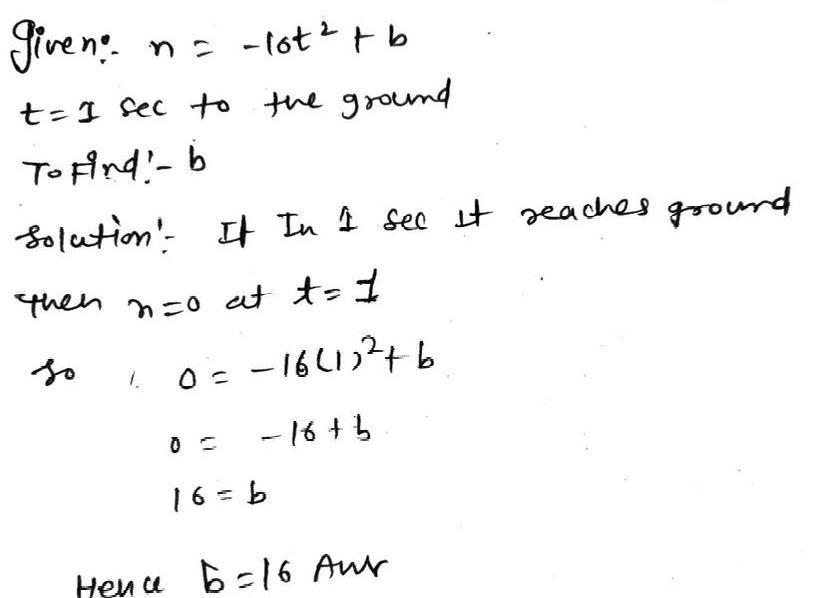 Given:- n = -16t² + b
t = 1 sec to the ground
To Find:- b
Solution:- If In 1 sec it reaches ground
then n=0 at t=1
So, 0 = -16(1)² + b
0 = -16 + b
16 = b
Hence b=16 Ans